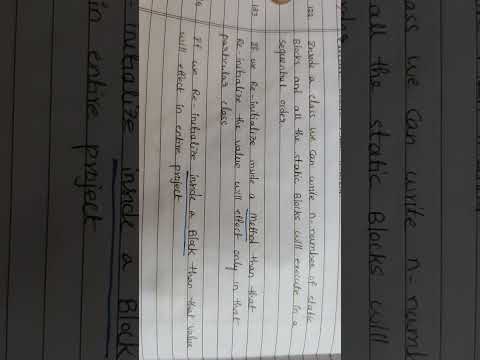 122 Inside a class we can write n-number of static
Blocks and all the static Blocks will execute in a
sequential order
123 If we Re-initialize inside a method than that
Re initialize the value will effect only in that
particular class
If we Re-initialize inside a Block than that value
will effect in entire project
ass we can write n-num
all the static Blocks will
initialize inside a Block
in entire project